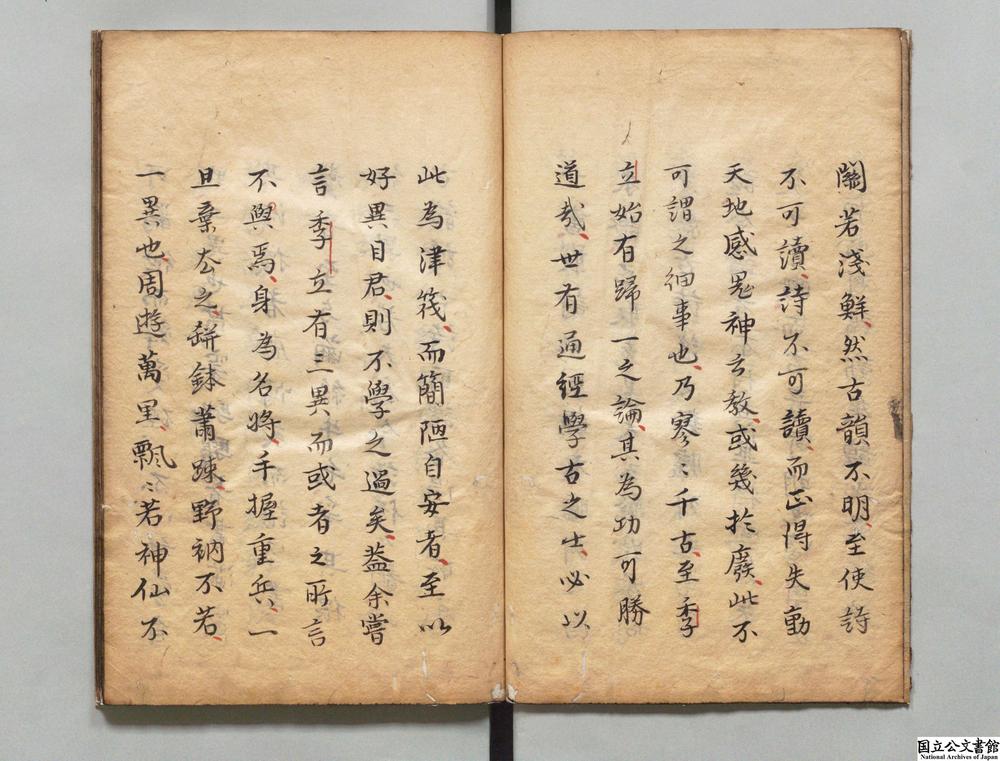 關若淺鮮然古韻不明至使詩
不可讀詩不可讀而正得失動
天地感鬼神之教或幾於廢此不
可謂之細事也乃寥〻千古至季
立始有歸一之論其為功可勝
道哉世有通經學古之士必以
此為津筏而簡陋自安者至以
好異目君則不學之過矣蓋余嘗
言季立有三異而或者之所言
不與焉身為名將手握重兵一
旦棄去之缾鉢蕭疎野衲不若
一異也周遊萬里飄〻若神仙不
国立公文書館
National Archives of Japan